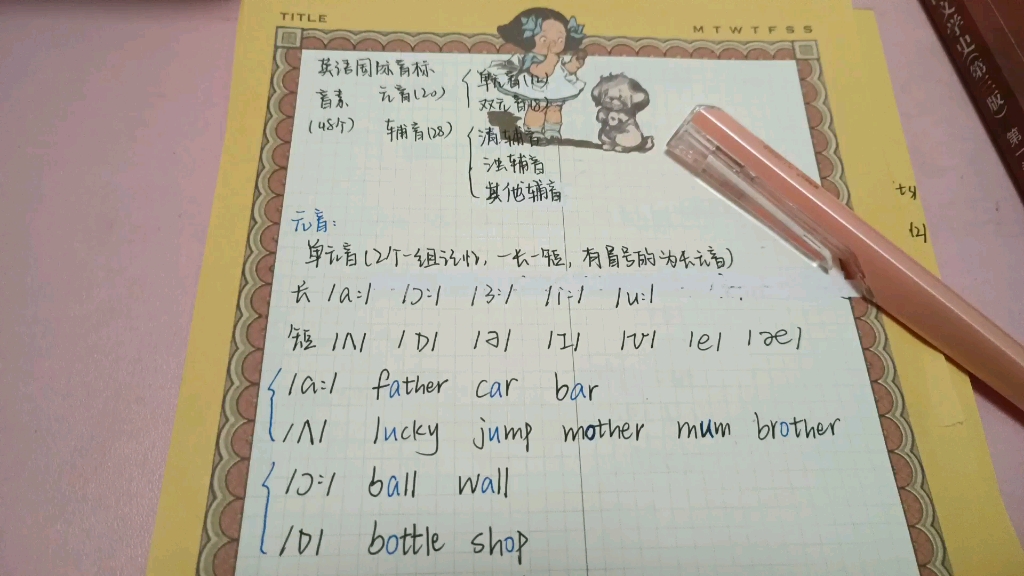 TITLE
M T W T F S S
英语国际音标
音素 元音(20)
(48个) 辅音(28)
单元音(12)
双元音(8)
清辅音
浊辅音
其他辅音
元音:
单元音(2个一组记忆, 一长一短, 有冒号的为长元音)
长 /a:/ /ɔ:/ /ɜ:/ /i:/ /u:/
短 /ʌ/ /ɒ/ /ə/ /ɪ/ /ʊ/ /e/ /æ/
/a:/ father car bar
/ʌ/ lucky jump mother mum brother
/ɔ:/ ball wall
/ɒ/ bottle shop
文学史(第三版) 第